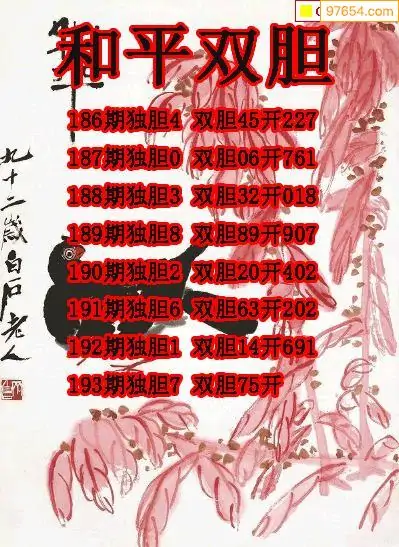 97654.com
和平双胆
186期独胆4 双胆45开227
187期独胆0 双胆06开761
188期独胆3 双胆32开018
189期独胆8 双胆89开907
190期独胆2 双胆20开402
191期独胆6 双胆63开202
192期独胆1 双胆14开691
193期独胆7 双胆75开
九十二岁白石老人